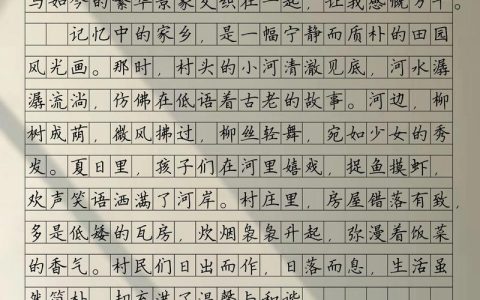 与如今的繁华景象交织在一起，让我感慨万千。
记忆中的家乡，是一幅宁静而质朴的田园
风光画。那时，村头的小河清澈见底，河水潺
潺流淌，仿佛在低语着古老的故事。河边，柳
树成荫，微风拂过，柳丝轻舞，宛如少女的秀
发。夏日里，孩子们在河里嬉戏，捉鱼摸虾，
欢声笑语洒满了河岸。村庄里，房屋错落有致，
多是低矮的瓦房，炊烟袅袅升起，弥漫着饭菜
的香气。村民们日出而作，日落而息，生活虽
然简朴，却充满了温馨与和谐